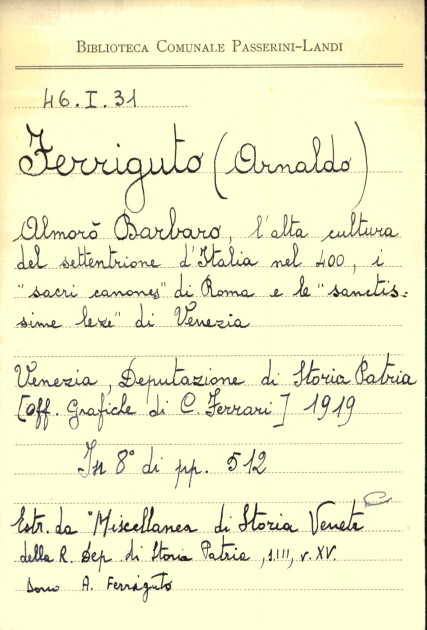 BIBLIOTECA COMUNALE PASSERINI-LANDI
46.I.31
Ferriguto (Arnaldo)
Almorò Barbaro, l'alta cultura
del settentrione d'Italia nel 400, i
"sacri canones" di Roma e le "sanctis=
sime leze" di Venezia
Venezia, Deputazione di Storia Patria
[Off. Grafiche di C. Ferrari] 1919
In 8° di pp. 512
Estr. da "Miscellanea di Storia Veneta
della R. Dep. di Storia Patria, s.III, v. XV.
Dono A. Ferriguto